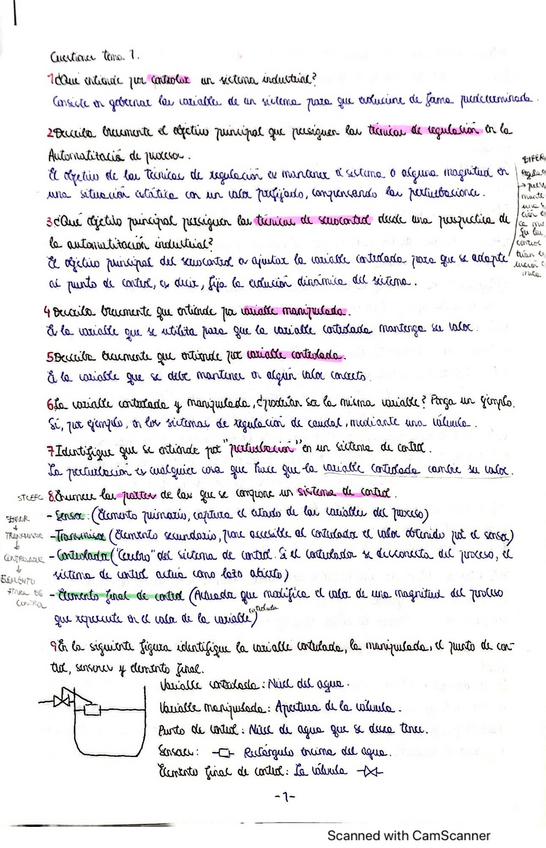 Cuestiones tema 1.
1 ¿Qué entiende por controlar un sistema industrial?
Consiste en gobernar las variables de un sistema para que evolucione de forma predeterminada.
2 Describa brevemente el objetivo principal que persiguen las técnicas de regulación en la
Automatización de procesos.
El objetivo de las técnicas de regulación es mantener el sistema o alguna magnitud en
una situación estática con un valor prefijado, compensando las perturbaciones.
3 ¿Qué objetivo principal persiguen las técnicas de servocontrol desde una perspectiva de
la automatización industrial?
El objetivo principal del servocontrol es ajustar la variable controlada para que se adapte
al punto de control, es decir, fija la evolución dinámica del sistema.
4 Describa brevemente que entiende por variable manipulada.
Es la variable que se utiliza para que la variable controlada mantenga su valor.
5 Describa brevemente que entiende por variable controlada.
Es la variable que se debe mantener en algún valor concreto.
6 La variable controlada y manipulada, ¿podrían ser la misma variable? Ponga un ejemplo.
Sí, por ejemplo, en los sistemas de regulación de caudal, mediante una válvula.
7 Identifique que se entiende por "perturbación" en un sistema de control.
La perturbación es cualquier cosa que hace que la variable controlada cambie su valor.
STCEFC 8 Enumere las partes de las que se compone un sistema de control.
- Sensor: (Elemento primario, captura el estado de las variables del proceso)
- Transmisor (Elemento secundario, hace accesible al controlador el valor obtenido por el sensor)
- Controlador ("Cerebro" del sistema de control. Si el controlador se desconecta del proceso, el
sistema de control actúa como lazo abierto)
- Elemento final de control (Actuador que modifica el valor de una magnitud del proceso
que repercute en el valor de la variable controlada)
SENSOR
TRANSMISOR
CONTROLADOR
ELEMENTO
FINAL DE
CONTROL
9 En la siguiente figura identifique la variable controlada, la manipulada, el punto de con-
trol, sensores y elemento final.
Variable controlada: Nivel del agua.
Variable manipulada: Apertura de la válvula.
Punto de control: Nivel de agua que se desea tener.
Sensores: Rectángulo encima del agua.
Elemento final de control: La válvula
-1-
Scanned with CamScanner